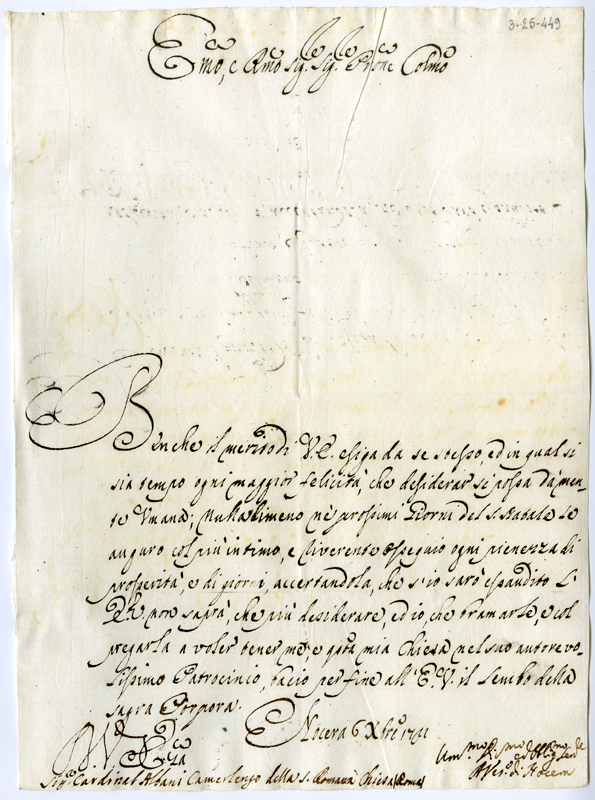 3-26-449
Emo, e Rmo Sig.r Sig.r Prone Colmo
Benche il merito di V.E. esiga da se stesso, ed in qual si
sia tempo ogni maggior felicità, che desiderar si possa da men-
te Umana; Nulladimeno nè prossimi Giorni del S. Natale le
auguro col più intimo, e riverente ossequio ogni pienezza di
prosperità, e di giorni, accertandola, che s'io sarò esaudito
non saprà, che più desiderare, ed io, che bramarle, e col
pregarla a voler tener me, e qsta mia Chiesa nel suo autorevo-
lissimo Patrocinio, bacio per fine all'E.V. il lembo della
sagra Porpora.
Nocera 6 Xbre 1721
Sig.r Cardinal Albani Camerlengo della S. Romana Chiesa (Roma)
Um.mo
il Ves.o di Nocera